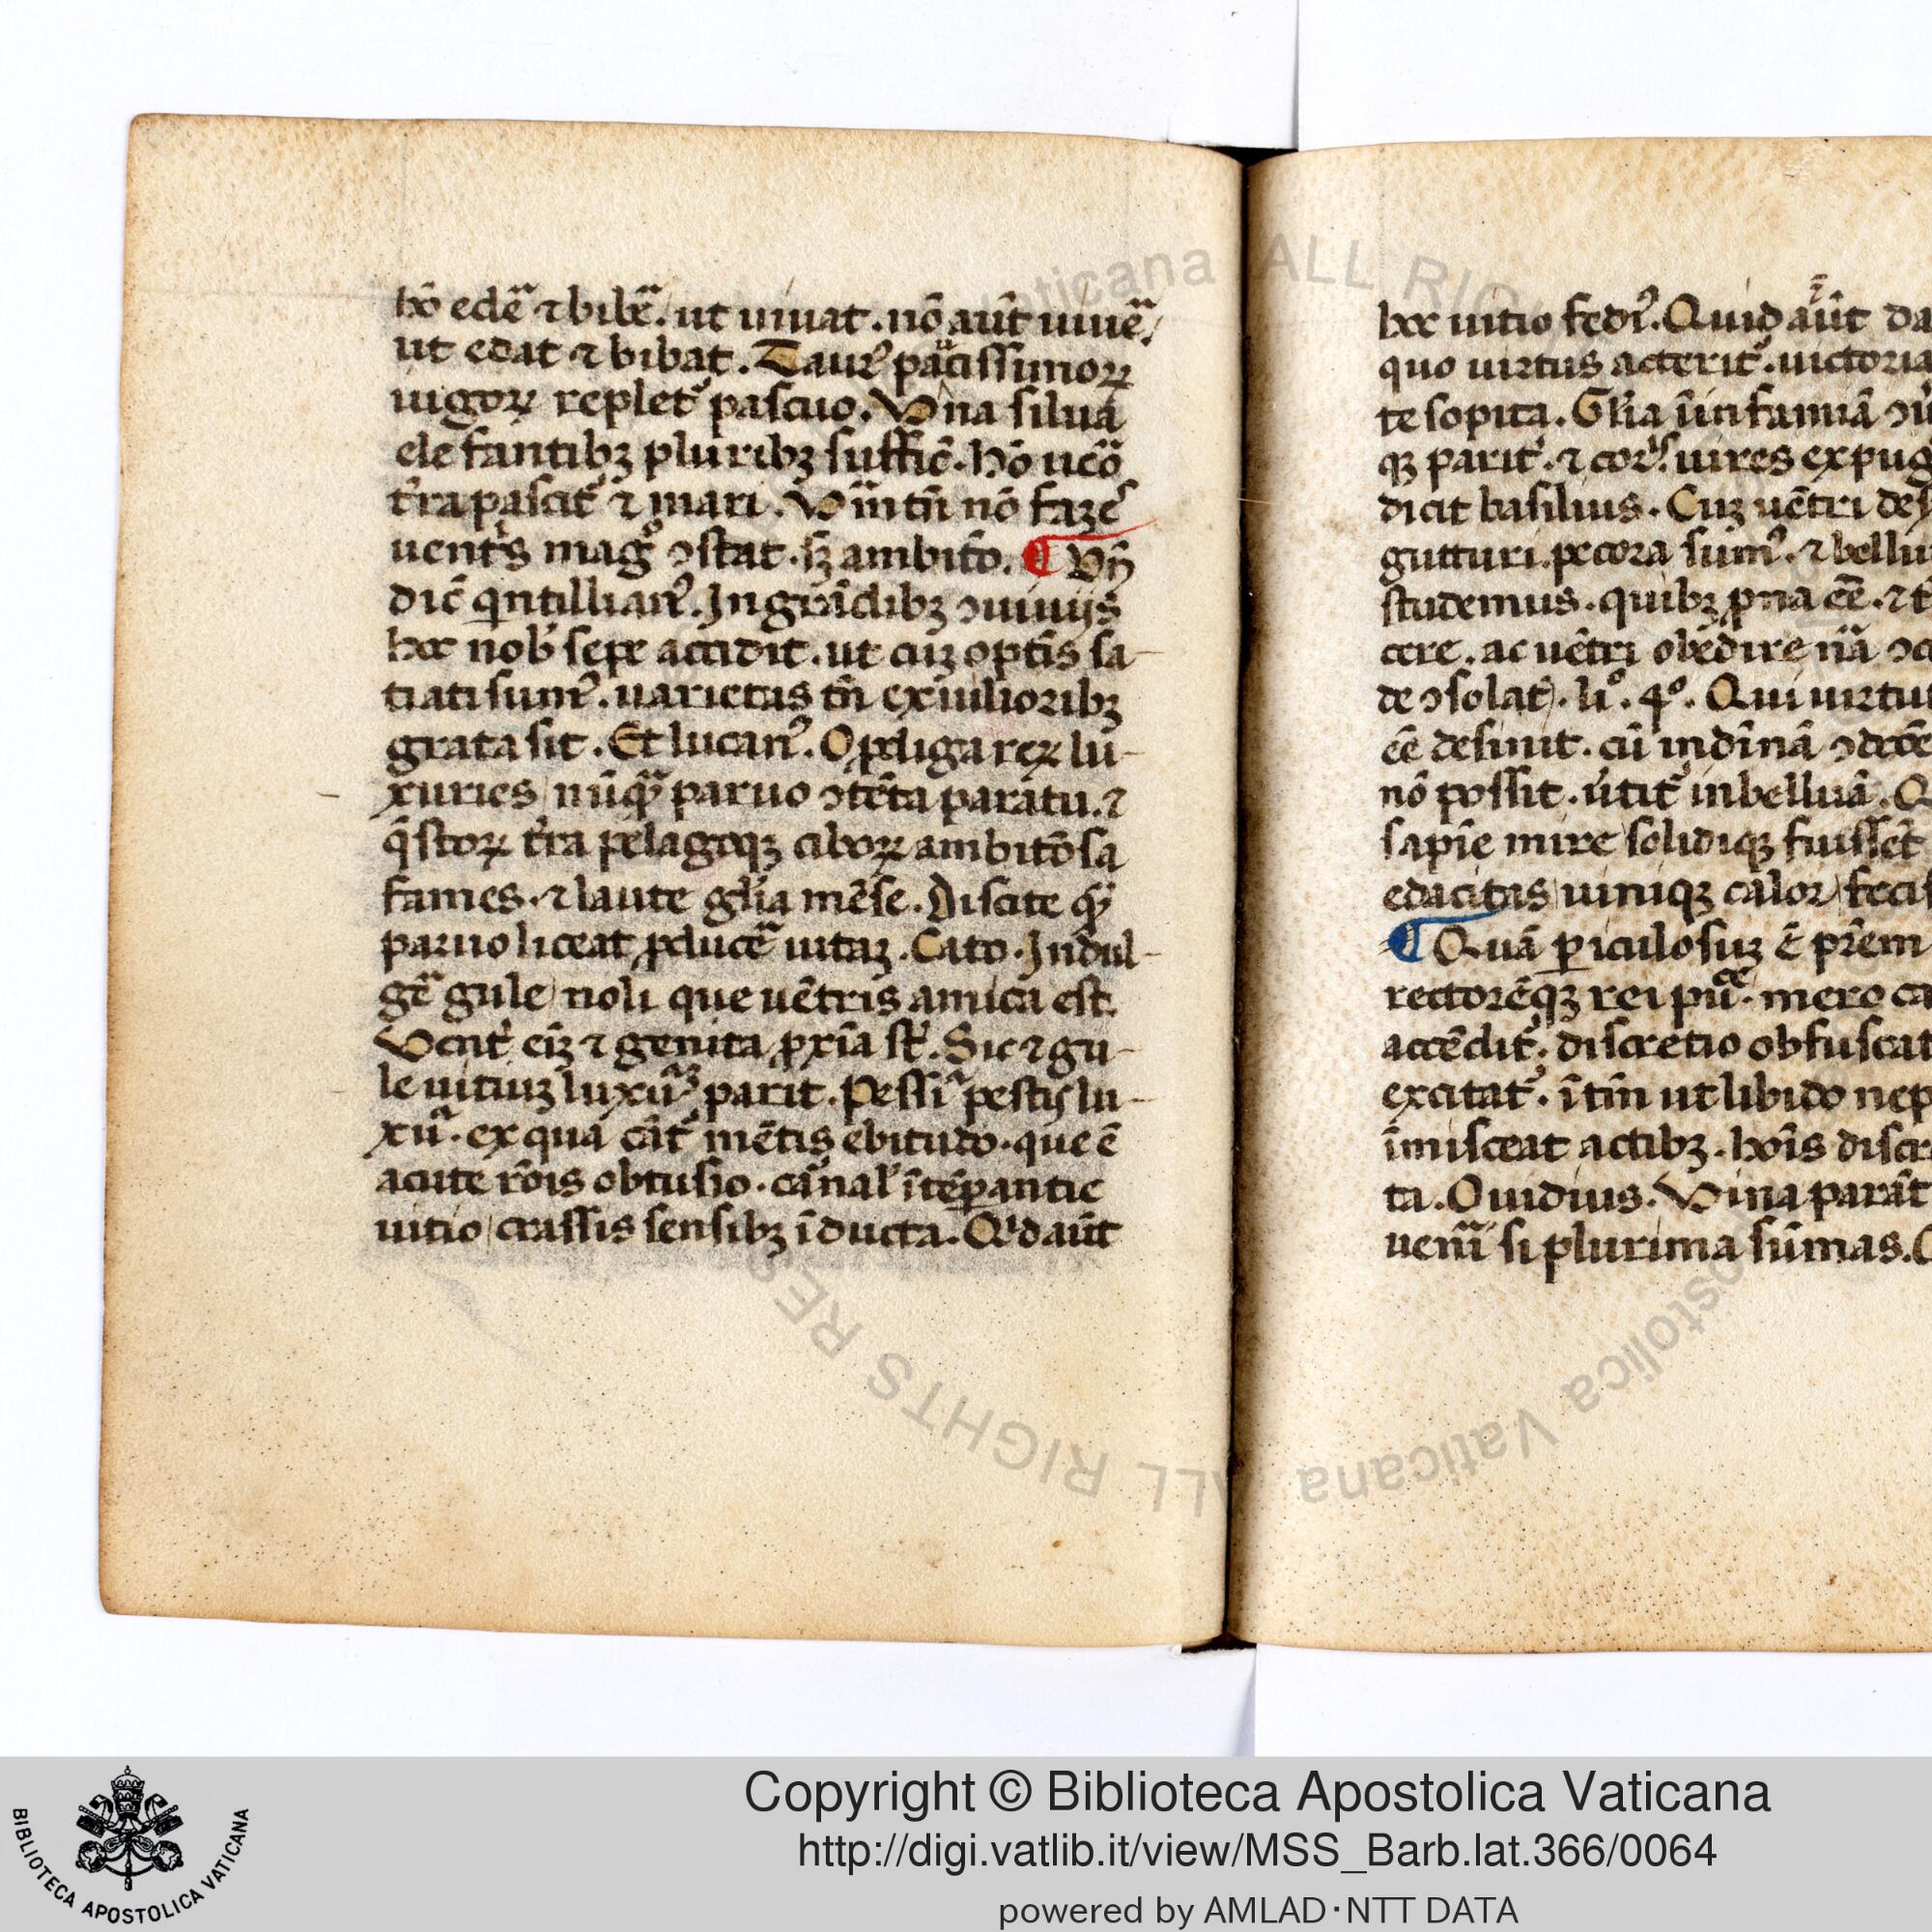 hō edēᷓ ⁊ bibēᷓ. ut uiuat. nō aūt uiuēᷓ.
ut edat ⁊ bibat. Taurꝰ paucissimoꝝ
uigoꝝ replet᷑ pascuo. Vna silua
elefantibꝫ pluribꝫ suffic̄. hō uēo
t̄ra pascit᷑ ⁊ mari.
mag ꝯstat. sꝫ ambitō. ¶ Vn̄
dic̄ qͥntillianꝰ. In grādibꝫ ꝯuiuijs
hoc nob̄ sepe accidit. ut cuꝫ optīs sa-
tiati sumꝰ. uarietas tn̄ ex uilioribꝫ
grata sit. Et lucanꝰ. O ꝓdiga reꝝ lu-
xuries nūqᷓ paruo ꝯtēta paratu. ⁊
q̄sitoꝝ t̄ra pelagoqꝫ ciboꝝ ambitōsa
fames. ⁊ laute gl̄ia mēse. Discite qᷓ
paruo liceat ꝓducēᷓ uitaꝫ. Cato. Indul-
gēᷓ gule noli que uētris amica est.
Vent᷑ eīꝫ ⁊ genita ꝓxīa st̄. Sic ⁊ gu-
le uitiuꝫ luxūᷓꝫ parit. Pessiᷓ pestis lu-
xūᷓ. ex qua cāt᷑ mētis ebitudo. que ē
acute rōis obtusio. carnal̄ ītēꝑantie
uitio crassis sensibꝫ īducta. Qͥd aūt
hoc uitio fediꝰ. Quid aūt
quo uirtus atterit᷑. uictoria
te sopita. Gl̄ia ī infamiā
qꝫ parit᷑. ⁊ uires expug
dicit basilius. Cuꝫ uētri
gutturi. pecora sumꝰ. ⁊ bellu
studemus. quibꝫ ꝓna eē̄. ⁊
cere. ac uētri obedire nā
de ꝯsolat̄. li°. 4°. Qui uirtu
eē̄ desinit. cū in dīnā
nō possit. u̇tit᷑ in belluā.
sapīe mire solidiqꝫ fuissēt
edacitas uiniqꝫ calor
¶ Quā ꝑiculosuꝫ ē
rectorēqꝫ rei pūᶜᵉ. mero
accēdit᷑. discretio obfuscat
excitat᷑. ītm̄ ut libido
īmisceat actibꝫ. hoīs
ta. Ouidius. Vina parāt
uenīᷓ si plurima sūmas.
Copyright © Biblioteca Apostolica Vaticana
http://digi.vatlib.it/view/MSS_Barb.lat.366/0064
powered by AMLAD·NTT DATA
BIBLIOTECA APOSTOLICA VATICANA